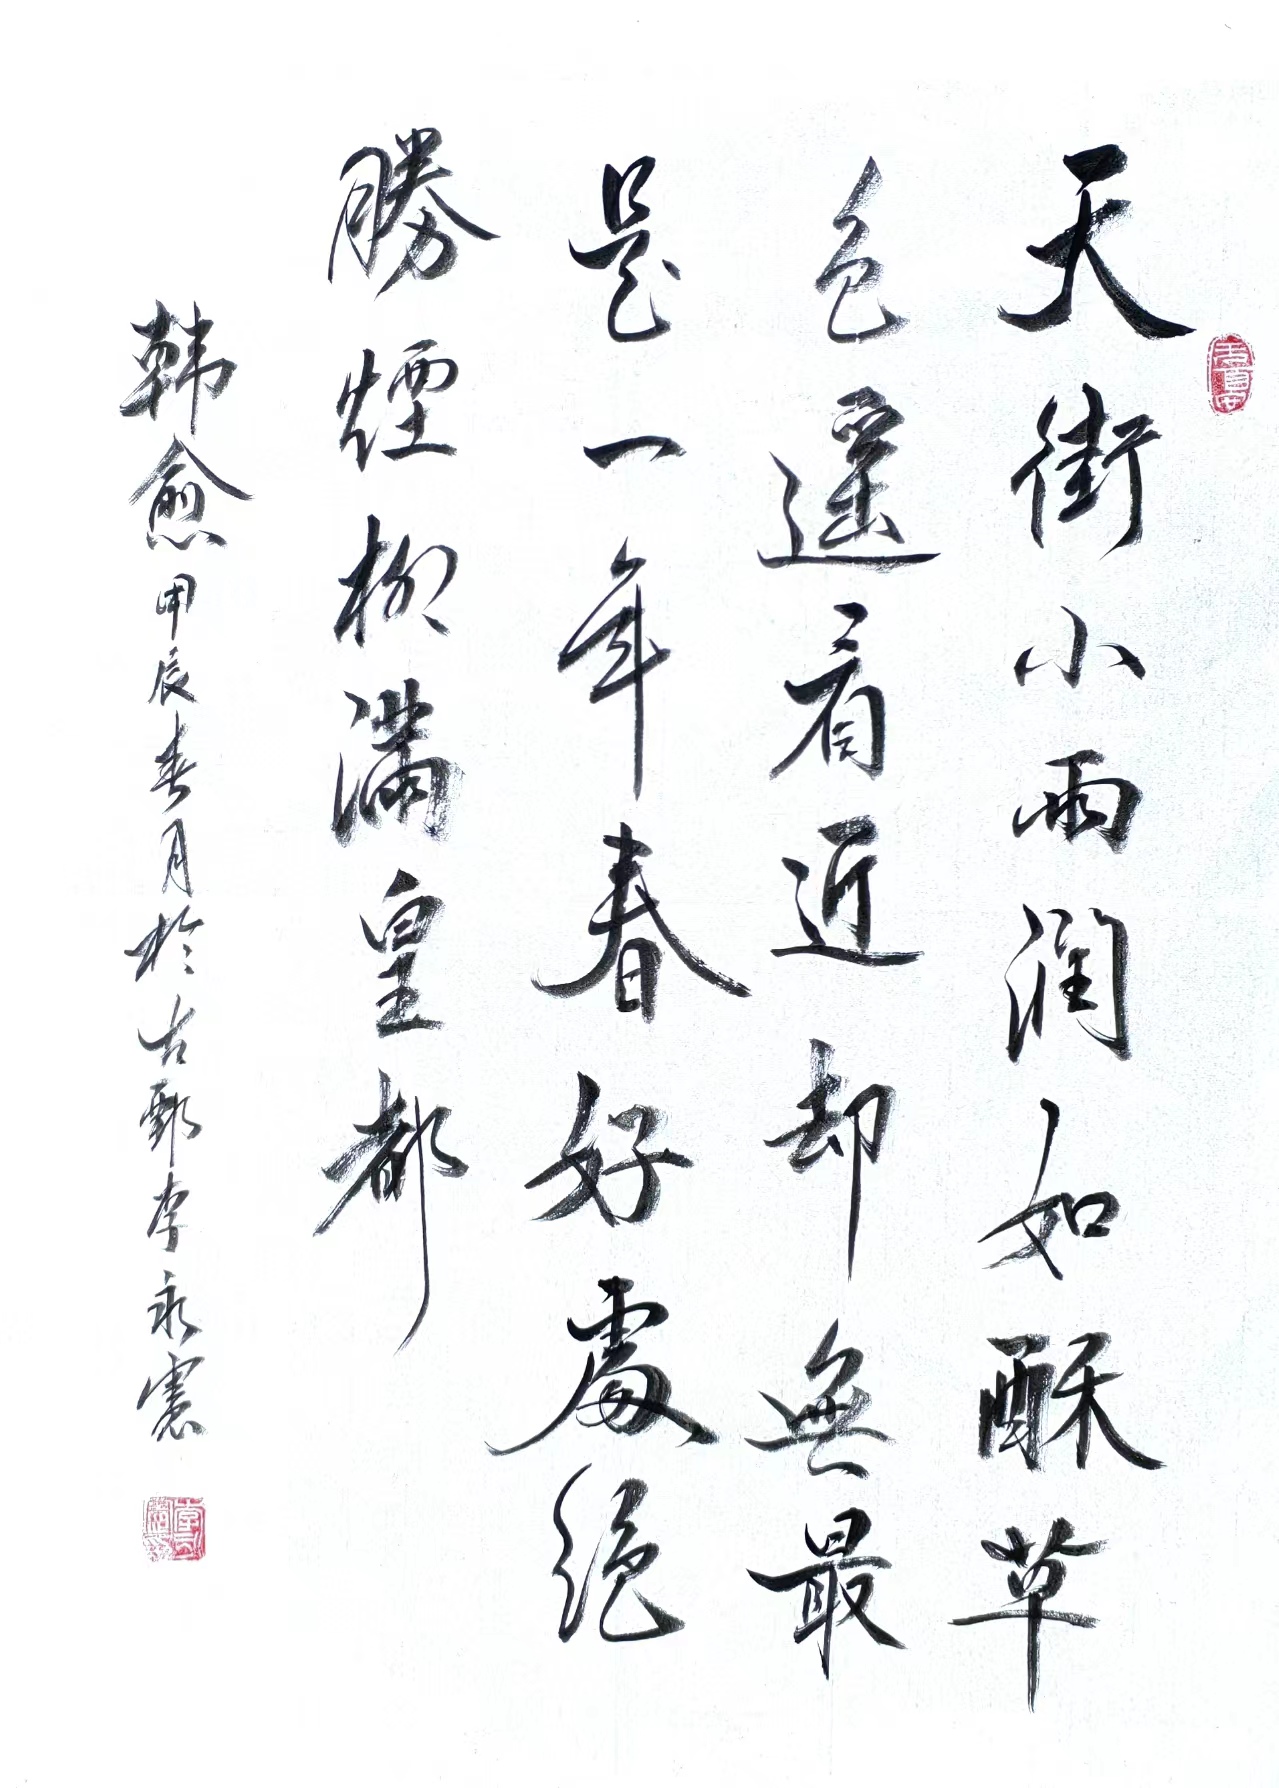 天街小雨润如酥草
色遥看近却無最
是一年春好處絕
勝煙柳满皇都
韩愈甲辰春月於古鄄李永憲